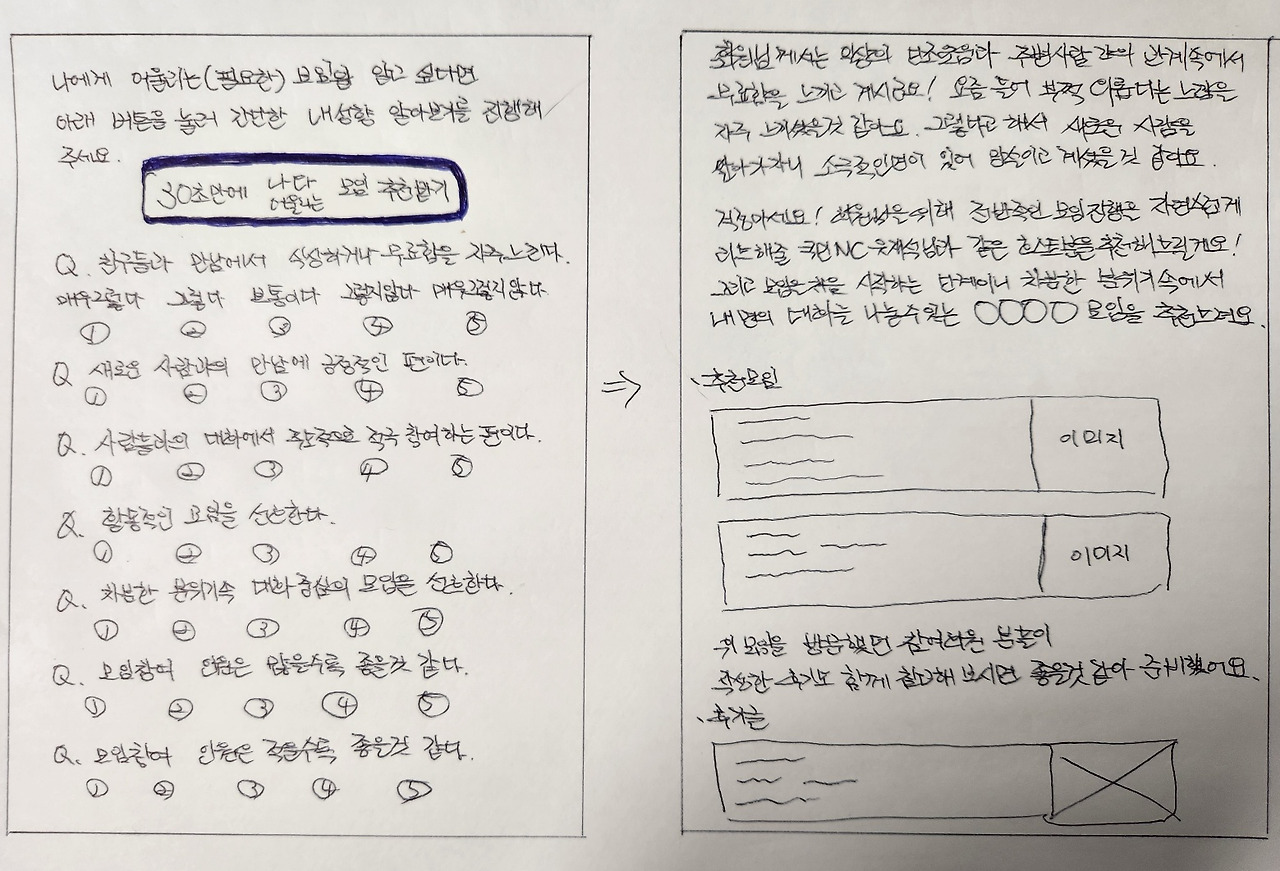 나에게 어울리는(필요한) 모임을 알고 싶다면
아래 버튼을 눌러 간단한 내성향 알아보기를 진행해
주세요.
30초만에 나다 어울리는 모임 추천받기
Q. 친구들과 만남에서 식상하거나 무료함을 자주 느낀다.
매우그렇다 그렇다 보통이다 그렇지않다 매우그렇지않다.
① ② ③ ④ ⑤
Q 새로운 사람과의 만남에 긍정적인 편이다.
① ② ③ ④ ⑤
Q. 사람들과의 대화에서 주도적으로 적극 참여하는 편이다.
① ② ③ ④ ⑤
Q. 활동적인 모임을 선호한다.
① ② ③ ④ ⑤
Q. 차분한 분위기속 대화 중심의 모임을 선호한다.
① ② ③ ④ ⑤
Q. 모임참여 인원은 많을수록 좋을것 같다.
① ② ③ ④ ⑤
Q. 모임참여 인원은 적을수록 좋을것 같다.
① ② ③ ④ ⑤
⇒
회원님께서는 일상의 단조로움과 주변사람 간의 관계속에서
무료함을 느끼고 계시군요! 요즘들어 부쩍 외롭다는 느낌을
자주 느끼셨을것 같아요. 그렇다고 해서 새로운 사람을
알아가자니 소극적인면이 있어 망설이고 계셨을 것 같아요.
걱정마세요! 회원님을 위해 전반적인 모임진행은 자연스럽게
리드해줄 국민MC 유재석님과 같은 호스트분을 추천해드릴게요!
그리고 모임은 처음 시작하는 단계이니 차분한 분위기속에서
내면의 대화를 나눌수있는 ○○○○ 모임을 추천드려요.
、추천모임
이미지
이미지
위 모임을 방문했던 참여하신 분들이
작성한 후기도 함께 참고해 보시면 좋을것 같아 준비했어요.
、후기글